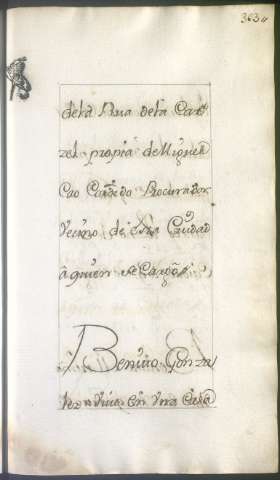 363
dela Rua dela Car
zel propia de Miguel
Cao Procurador
Vecino de esta Ciudad
â quien se Cargò
Benitto Gonza
lez vive en una Casa